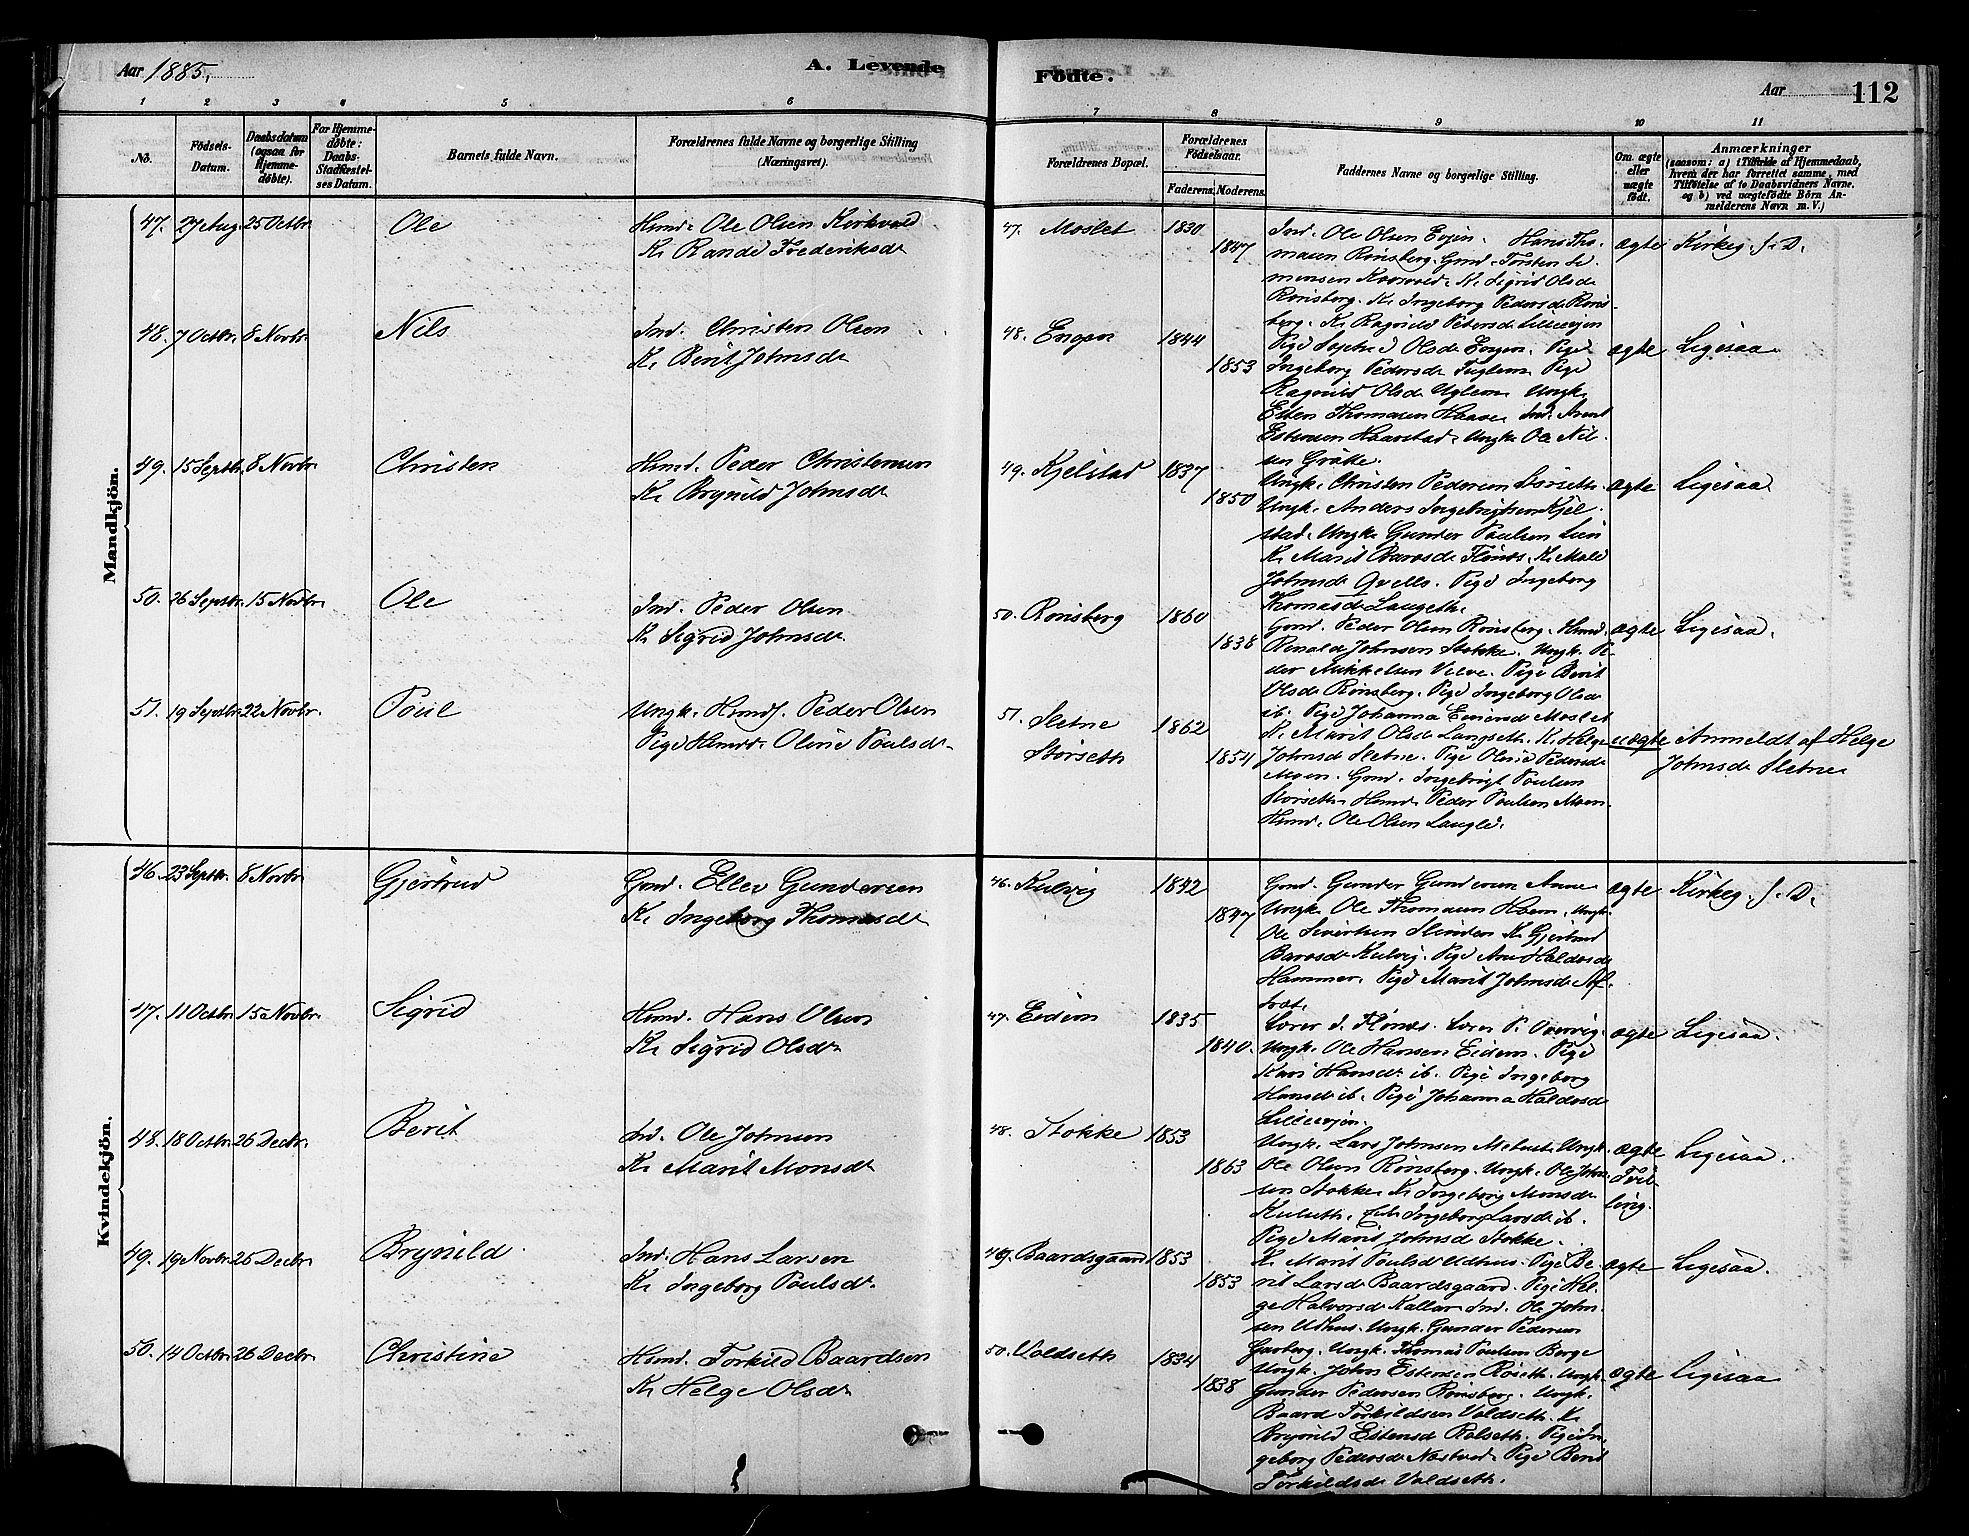 Aar 1885.
A. Levende
Födte.
Aar 112
1 2 3 4 5 6
7 8 9 10 11
No.
Födsels-Datum.
Daabsdatum (ogsaa for Hjemme-döbte).
For Hjemme-döbte: Daabs-Stadfæstel-ses Datum.
Barnets fulde Navn.
Forældrenes fulde Navne og borgerlige Stilling (Næringsvei).
Forældrenes Bopæl.
Forældrenes Födselsaar.
Faderens. Moderens.
Faddernes Navne og borgerlige Stilling.
Om ægte eller uægte födt.
Anmærkninger
(saasom: a) i Tilfælde af Hjemmedaab,
hvem der har forrettet samme, med
Tilföielse af to Daabsvidners Navne,
og b) ved uægtefödte Börn An-
melderens Navn m. V.)
Mandkjön.
47. 27 Aug. 25 Octbr. Ole
Hsmd. Ole Olsen Kirkvold
K. Randi Frederiksdr
47. Moslet 1830
1847
Ind. Ole Olsen Evjen. Hans Tho-
masen Rønsberg. Gmd. Torsten Si-
monsen Kosvold. K. Sigrid Olsdr
Rønsberg. K. Ingeborg Pedersdr Røns-
berg. K. Ragnild Petersdr Lilleevjen
ægte Kirkeg. f. D.
48. 7 Octbr. 8 Novbr. Nils
Ind. Christen Olsen
K. Berit Johnsdr
48. Engen 1844
1853
Pige Sophie Olsdr Engen. Pige
Ingeborg Pedersdr Fuglem. Pige
Ragnild Olsdr Uglem. Ungk.
Esten Thomasen Haave. Ind. Arnt
Estensen Haarstad. Ungk. Ole Nil-
sen Grøtte.
ægte Ligesaa.
49. 15 Septbr. 8 Novbr. Christen
Hsmd. Peder Christensen
K. Brynild Johnsdr
49. Kjelstad 1837
1850
Ungk. Christen Pedersen Størseth.
Ungk. Anders Ingebrigtsen Kjel-
stad. Ungk. Gunder Poulsen Lien
K. Marit Baarsdr Flønæs. K. Mali
Johnsdr Qvello. Pige Ingeborg
Thomasdr Langseth.
ægte Ligesaa.
50. 26 Septbr. 15 Novbr. Ole
Ind. Peder Olsen
K. Sigrid Johnsdr
50. Rønsberg 1860
1838
Gmd. Peder Olsen Rønsberg. Hsmd.
Renald Johnsen Stokke. Ungk. Pe-
der Mikkelsen Velve. Pige Berit
Olsdr Rønsberg. Pige Ingeborg Olsdr
ib. Pige Johanna Einersdr Moslet
ægte Ligesaa.
51. 19 Septbr. 22 Novbr. Poul
Ungk. Hsmdf. Peder Olsen
Pige Hsmdr. Oline Poulsdr
51. Sletne
Størseth
1862
1854
K. Marit Olsdr Langseth. K. Helge
Johnsdr Sletne. Pige Oline Pedersdr
Moen. Gmd. Ingebrigt Poulsen
Størseth. Hsmd. Peder Poulsen Moen.
Hsmd. Ole Olsen Langli.
uægte Anmeldt af Helge
Johnsdr Sletne
Kvindekjön.
46. 23 Septbr. 8 Novbr. Gjertrud
Gmd. Ellev Gundersen
K. Ingeborg Thomasdr
46. Kulvig 1842
1847
Gmd. Gunder Gundersen Aune
Ungk. Ole Thomasen Hoem. Ungk.
Ole Sivertsen Slinden. K. Gjertrud
Baarsdr Kulvig. Pige Ane Haldosdr
Hammer. Pige Marit Johnsdr Af-
løt.
ægte Kirkeg. f. D.
47. 11 Octbr. 15 Novbr. Sigrid
Hsmd. Hans Olsen
K. Sigrid Olsdr
47. Eidem 1835
1840.
Lærer J. Flønæs. Lærer P. Overvig.
Ungk. Ole Hansen Eidem. Pige
Kari Hansdr ib. Pige Ingeborg
Hansdr ib. Pige Johanna Haldosdr
Lilleevjen.
ægte Ligesaa.
48. 18 Octbr. 26 Decbr. Berit
Ind. Ole Johnsen
K. Marit Monsdr
48. Stokke 1853
1863
Ungk. Lars Johnsen Melhus. Ungk.
Ole Olsen Rønsberg. Ungk. Ole John-
sen Stokke. K. Ingeborg Monsdr
Kulseth. Enke Ingeborg Larsdr ib.
Pige Marit Johnsdr Stokke.
ægte Tvil-
ling.
Ligesaa.
49. 19 Novbr. 26 Decbr. Brynild.
Ind. Hans Larsen
K. Ingeborg Poulsdr.
49. Baardsgaard 1853
1853
K. Marit Poulsdr Udhus. Pige Be-
rit Larsdr Baardsgaard. Pige Hel-
ge Halvorsdr Kallar. Ind. Ole John-
sen Udhus. Ungk. Gunder Pedersen
Garberg. Ungk. Thomas Poulsen Borge
ægte Ligesaa.
50. 14 Octbr. 26 Decbr. Christine
Hsmd. Torkild Baardsen
K. Helge Olsdr
50. Voldseth 1834
1838
Ungk. John Estensen Røseth. Ungk.
Gunder Pedersen Rønsberg. Ungk.
Baard Torkildsen Voldseth. K.
Brynild Estensdr Rolseth. Pige In-
geborg Pedersdr Næstvold. Pige Berit
Torkildsdr Voldseth.
ægte Ligesaa